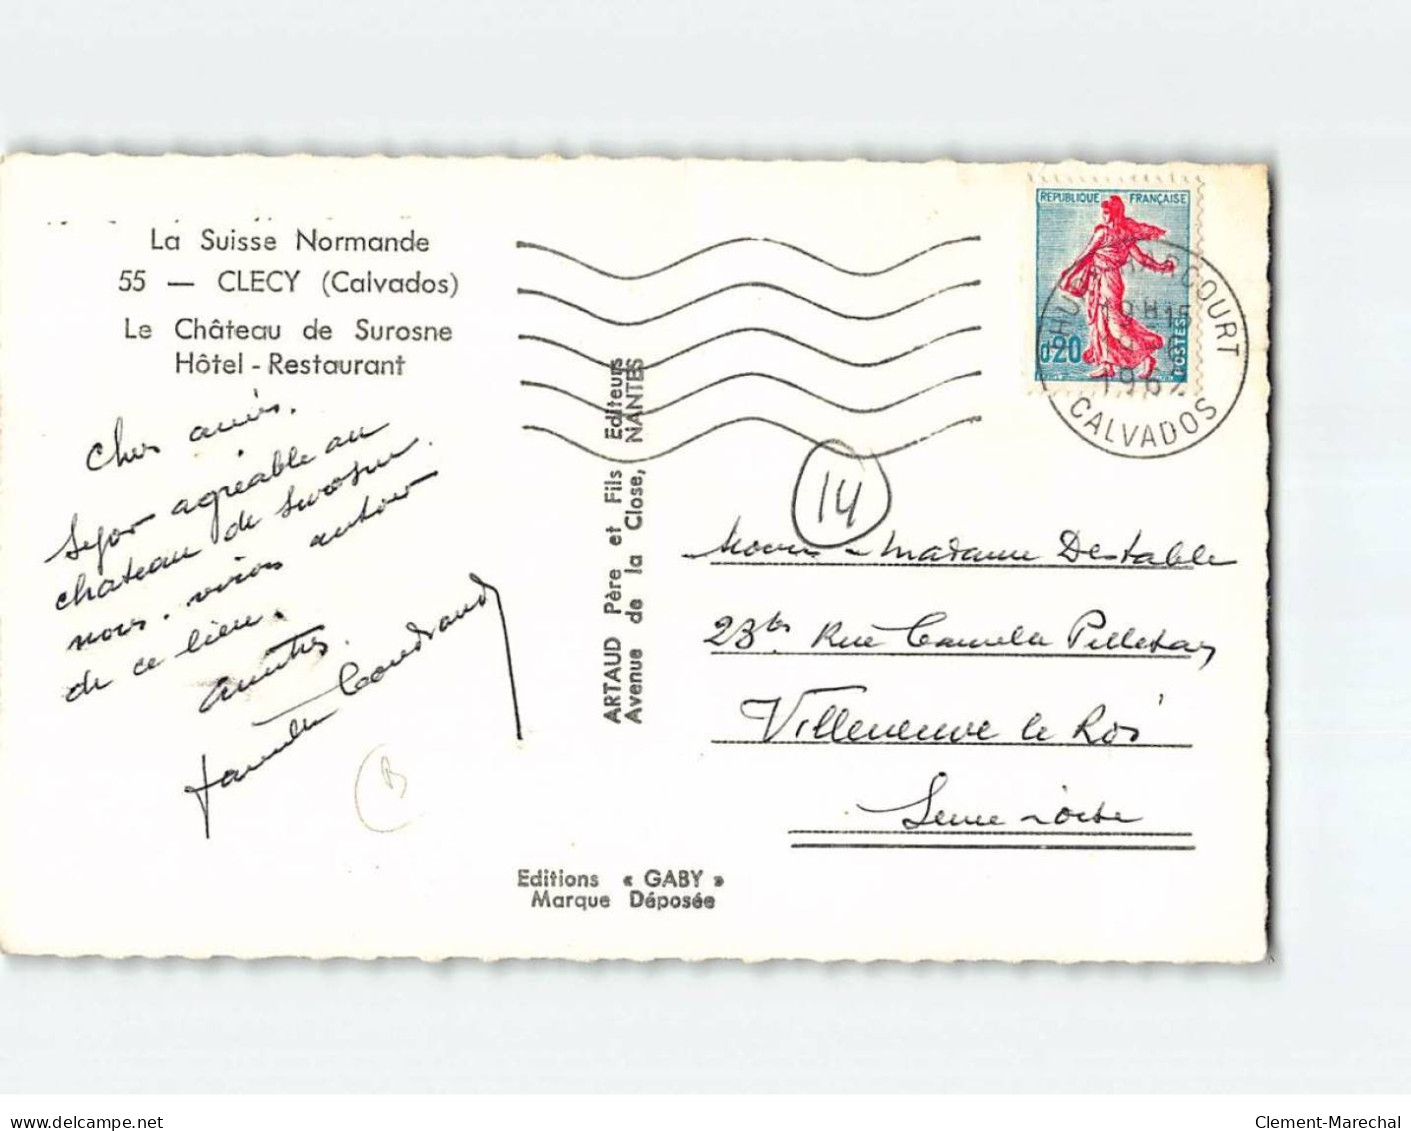 La Suisse Normande
55 — CLECY (Calvados)
Le Château de Surosne
Hôtel - Restaurant
Chers amis.
Sejour agréable au
chateau de Surosne.
nous. virons autour
de ce lieu.
Amitiés.
famille
B
ARTAUD Père et Fils Editeurs
Avenue de la Close, NANTES
Editions « GABY »
Marque Déposée
REPUBLIQUE FRANÇAISE
0,20
POSTES
THURY HARCOURT
1962
CALVADOS
14
Madame Destable
23bis Rue Camille Pelletan
Villeneuve le Roi
Seine & Oise
www.delcampe.net
Clement-Marechal